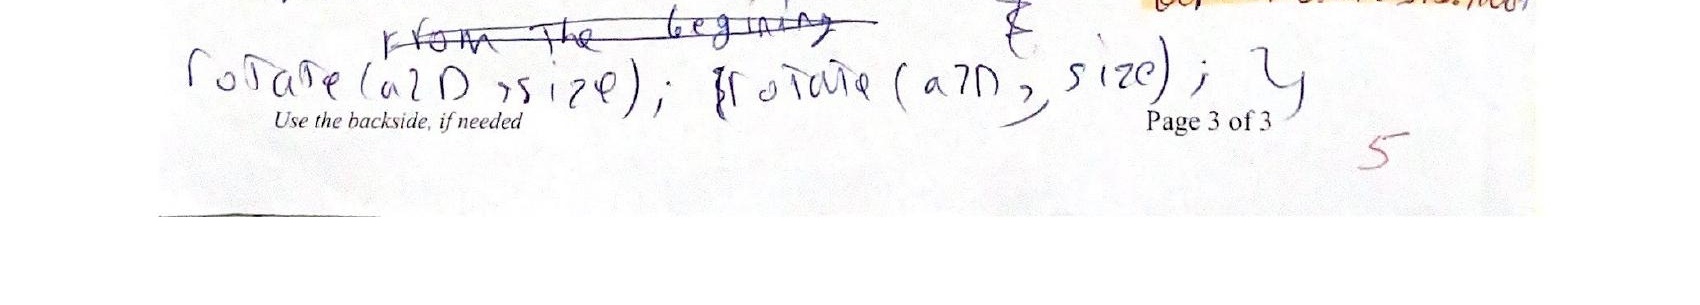 From the begining {
rotate(a2D, size); rotate(a2D, size); }
Use the backside, if needed Page 3 of 3
5